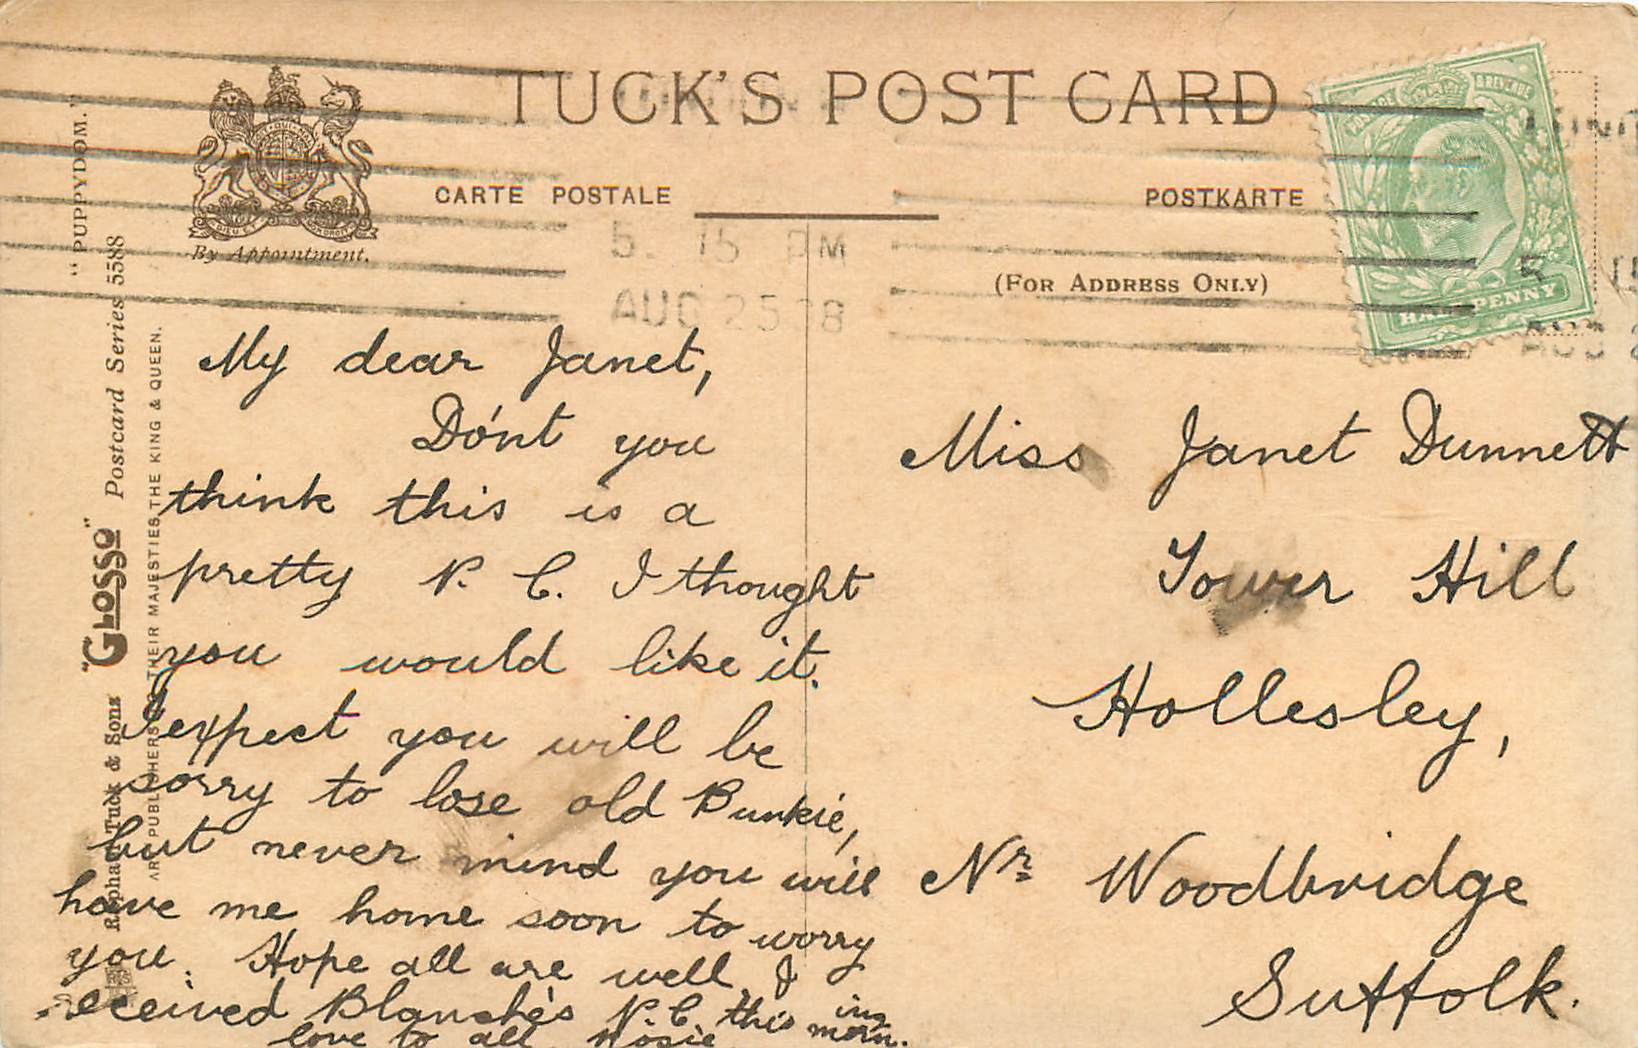 TUCK'S POST CARD
CARTE POSTALE
POSTKARTE
By Appointment.
(FOR ADDRESS ONLY)
"PUPPYDOM."
Raphael Tuck & Sons "GLOSSO" Postcard Series 5588
ART PUBLISHERS TO THEIR MAJESTIES THE KING & QUEEN.
POSTAGE & REVENUE
HALFPENNY
5. 15 PM
AUG 25 08
5 15
AUG 2
My dear Janet,
Do'nt you
think this is a
pretty P. C. I thought
you would like it.
I expect you will be
sorry to lose old Bunkie,
but never mind you will
have me home soon to worry
you. Hope all are well. I
received Blanche's P. C. this morning.
love to all. Rosie.
Miss Janet Dunnett
Tower Hill
Hollesley,
Nr Woodbridge
Suffolk.